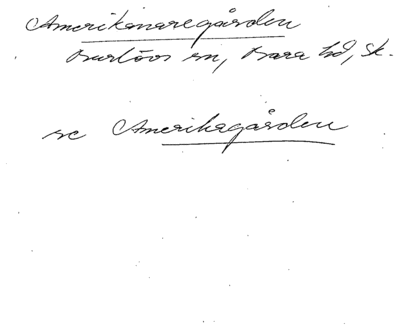 Amerikanaregården
Burlövs sn, Bara hd, Sk.
se Amerikagården